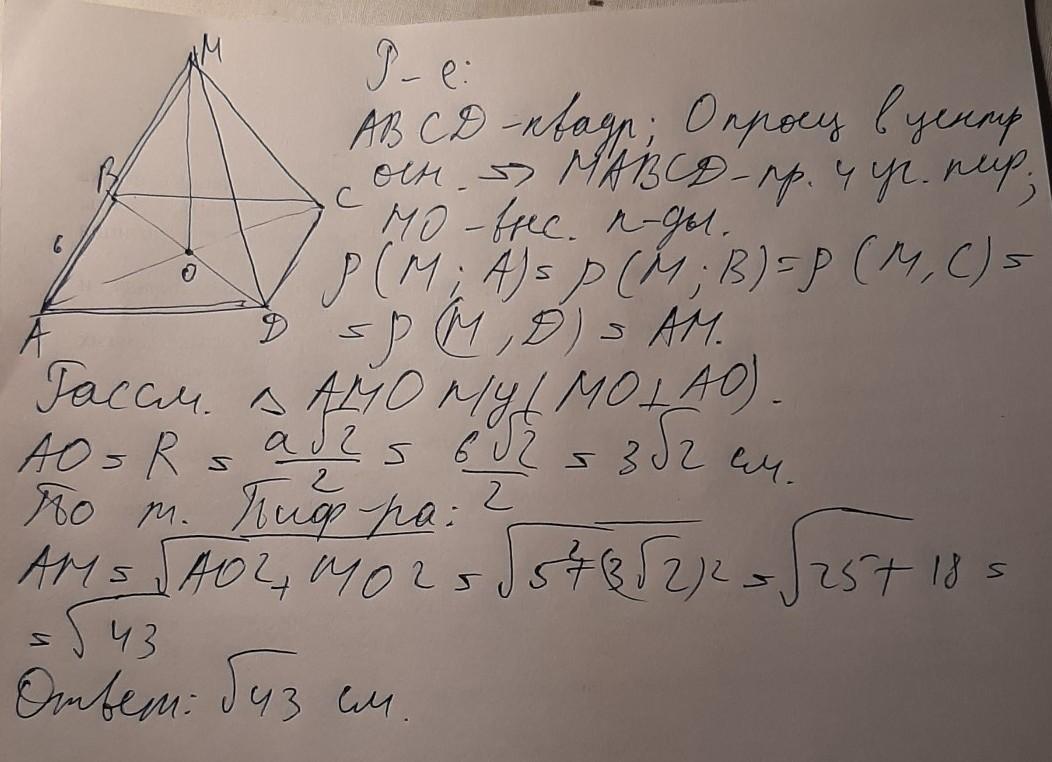 M
B
C
6
O
A
D
Р-е:
ABCD - квадр; O проец в центр
осн. => MABCD - пр. 4 уг. пир;
MO - выс. п-ды.
ρ(M; A) = ρ(M; B) = ρ(M, C) =
= ρ(M, D) = AM.
Рассм. △ AMO п/у (MO ⊥ AO).
AO = R = a√2/2 = 6√2/2 = 3√2 см.
По т. Пиф-ра:
AM = √AO2 + MO2 = √5²+(3√2)2 = √25+18 =
= √43
Ответ: √43 см.